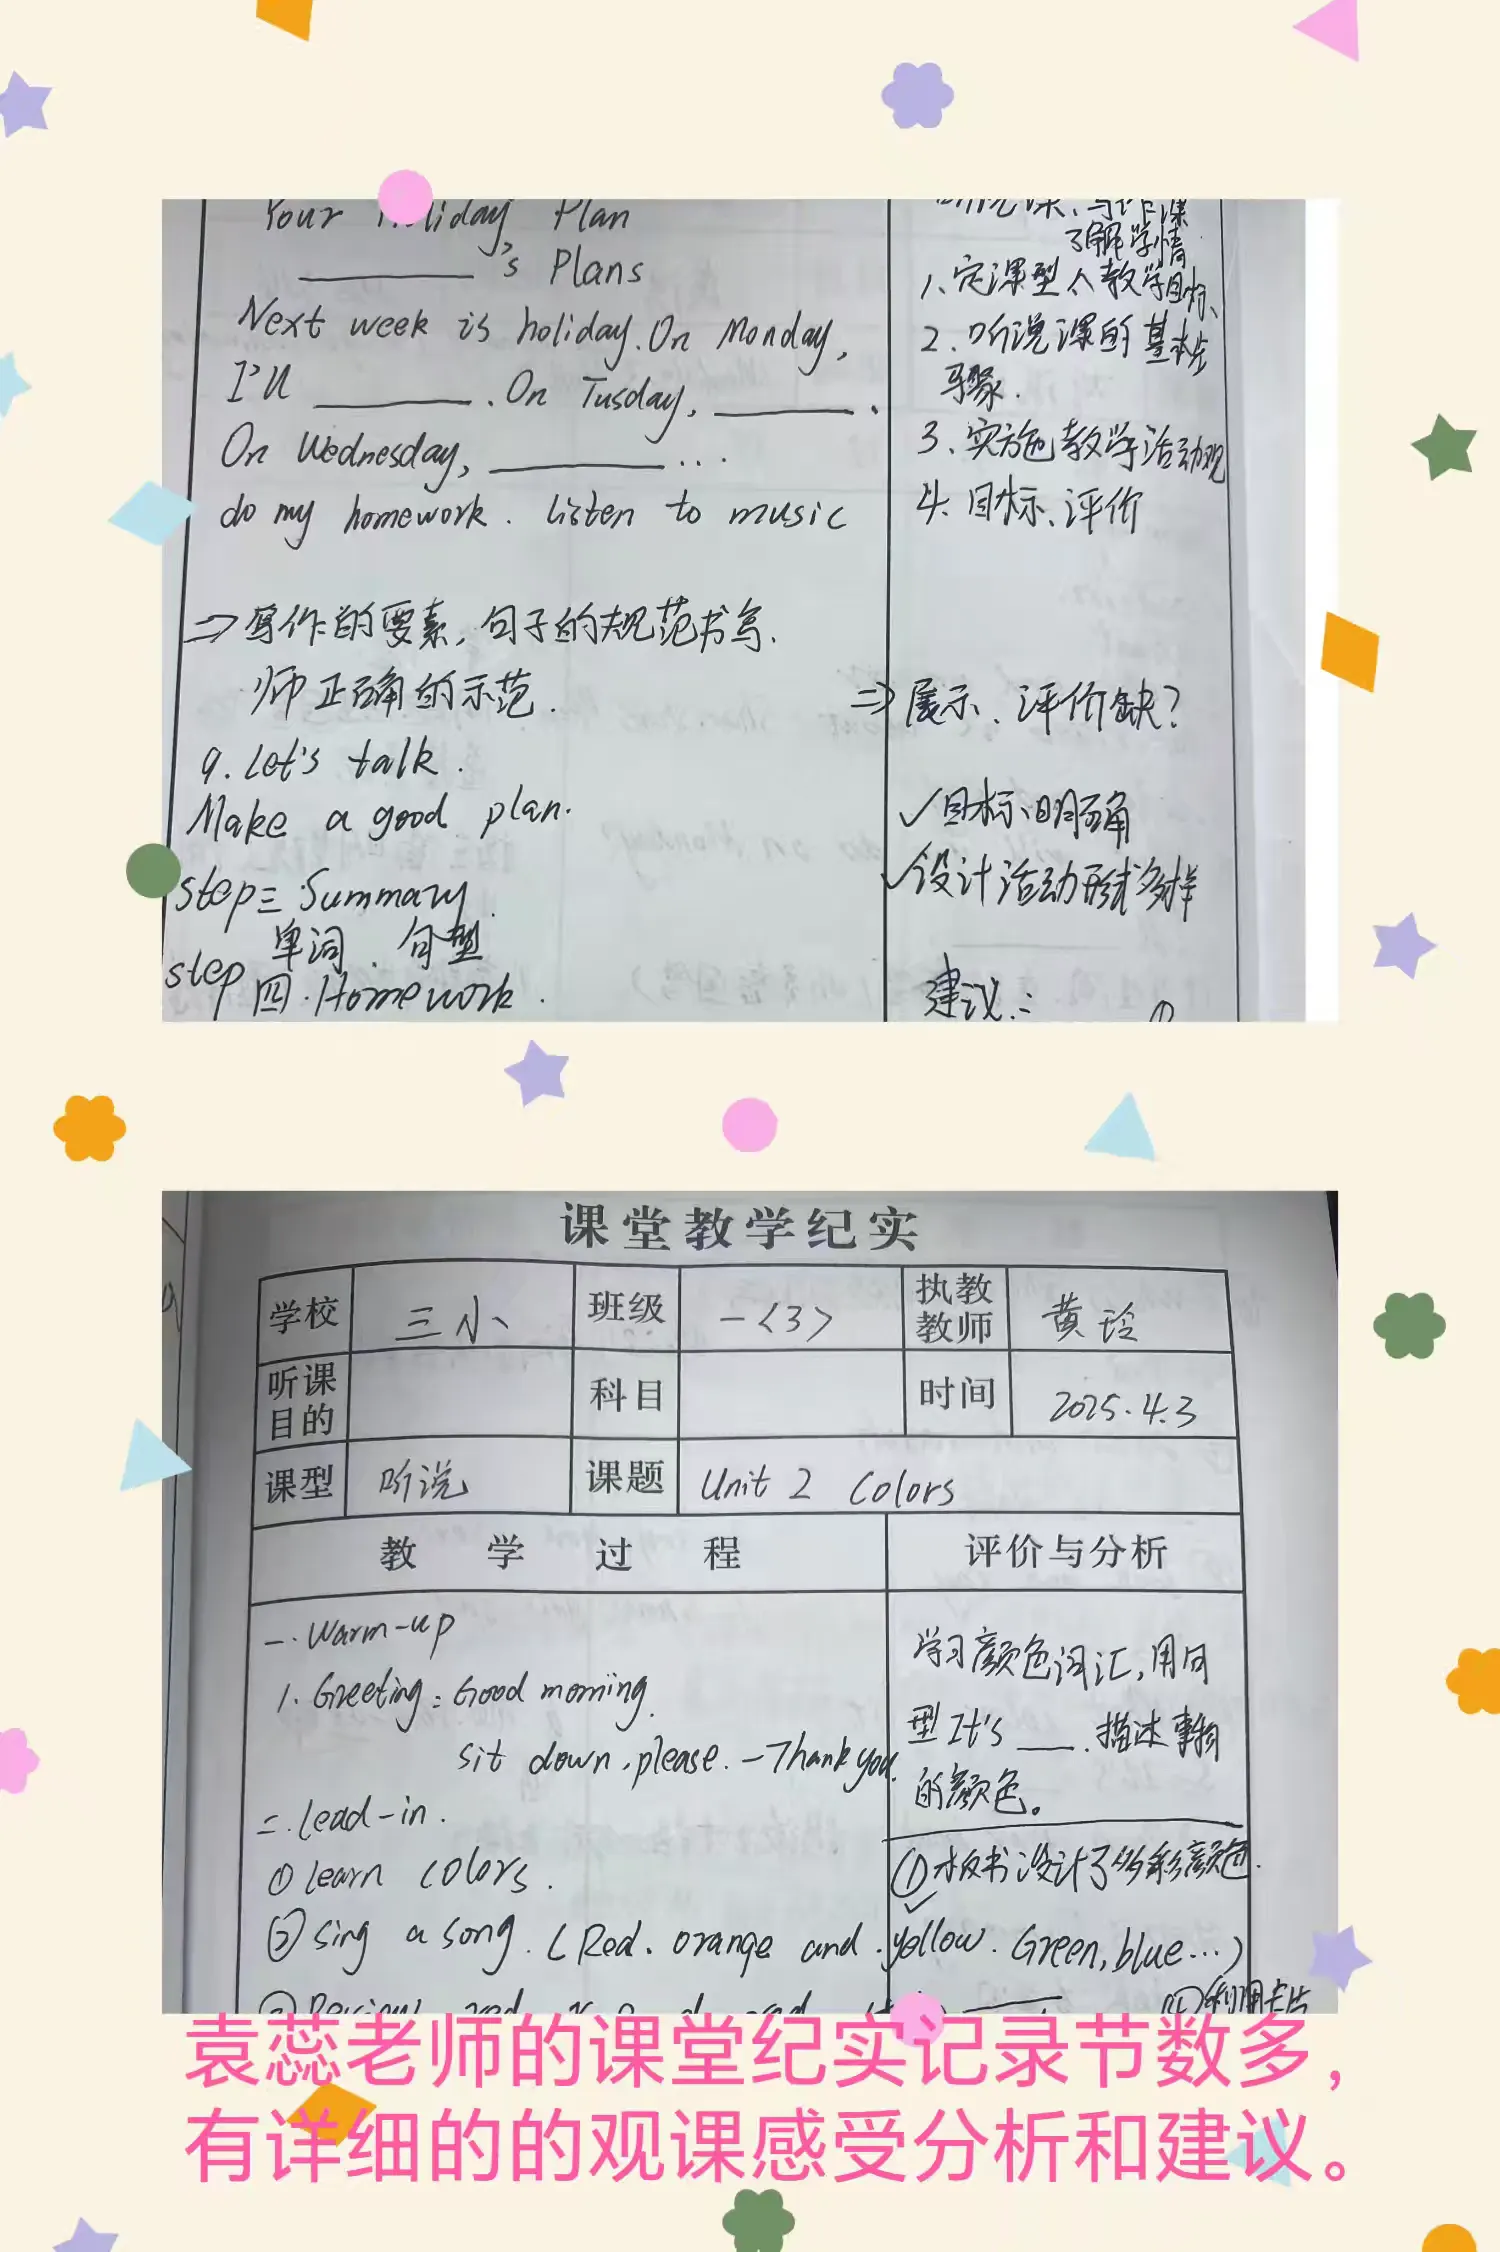 Your Holiday Plan
______'s Plans
Next week is holiday. On Monday,
I'll ______. On Tusday, ______.
On Wednesday, ______...
do my homework. listen to music
⇒写作的要素,句子的规范书写.
师正确的示范.
9. Let's talk.
Make a good plan.
step三.Summary.
单词.句型
step四.Homework.
听说课、写作课
了解学情
1、定课型、教学目标、
2.听说课的基本步
骤.
3、实施教学活动观
4.目标、评价
⇒展示、评价缺?
✓目标、明确
✓设计活动形式多样
建议:
课堂教学纪实
学校 三小 班级 一<3> 执教教师 黄玲
听课目的 科目 时间 2025.4.3
课型 听说 课题 Unit 2 Colors
教学过程 评价与分析
一.Warm-up
1. Greeting: Good morning.
sit down, please. —Thank you.
二.Lead-in.
①learn colors.
②sing a song. (Red. orange and yellow. Green, blue...)
学习颜色词汇,用句
型It's ___.描述事物
的颜色。
①板书设计了多彩颜色.
利用卡片
袁蕊老师的课堂纪实记录节数多,
有详细的的观课感受分析和建议。